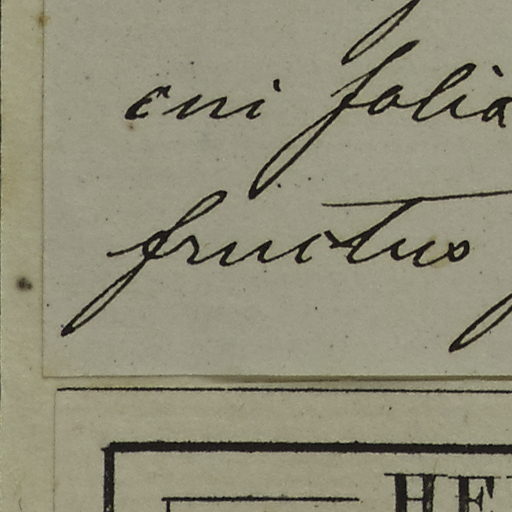 cui folia
fructus
HE